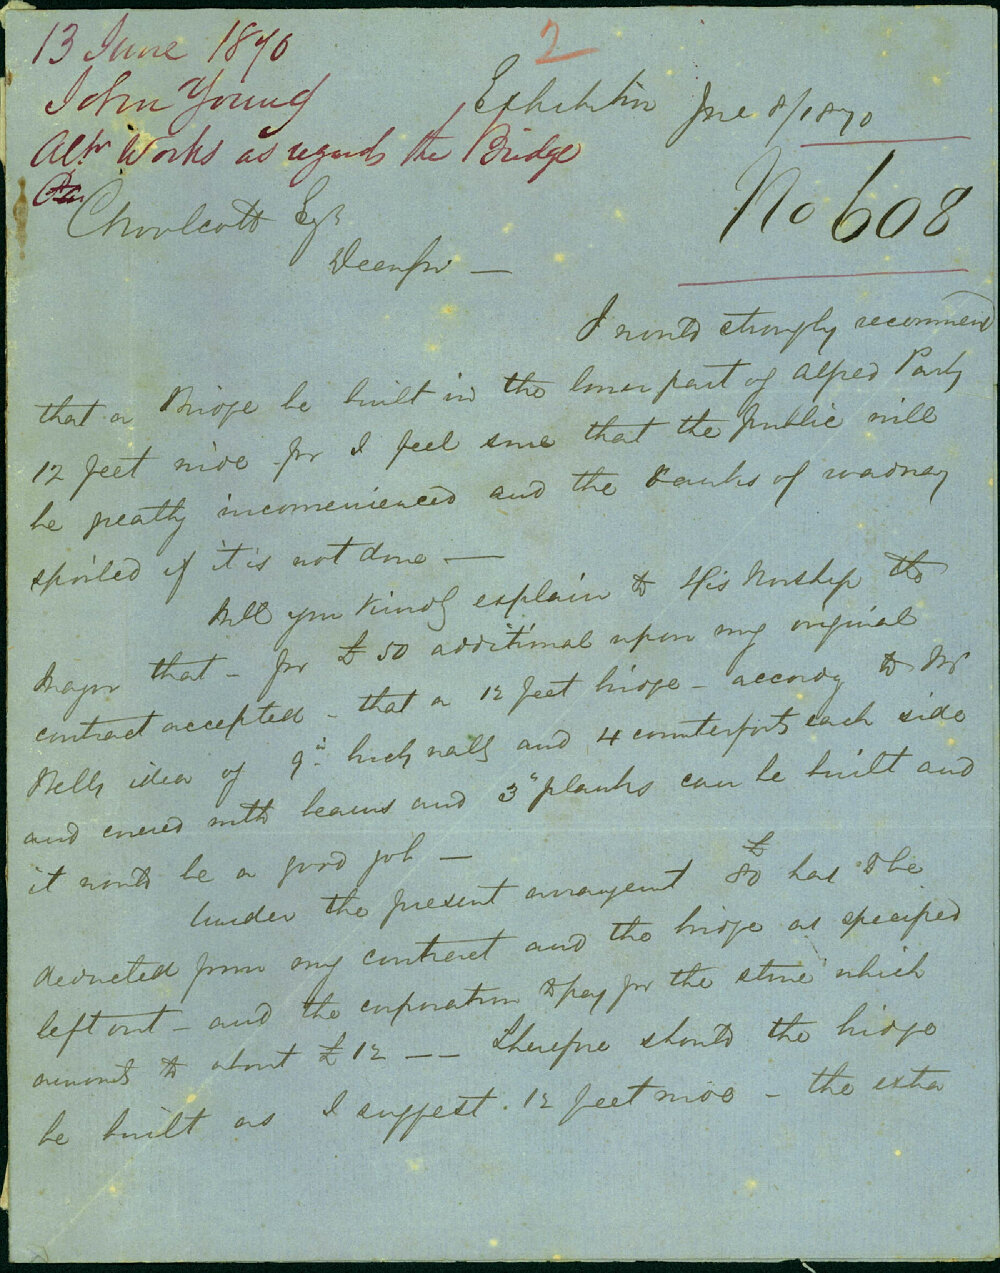 13 June 1870
John Young
Altr Works as regards the Bridge
2
Exhibition June 8/1870
No 608
Chs Woolcott Esqr
Dear Sir —
I would strongly recommend
that a Bridge be built in the lower part of Alfred Park
12 feet wide for I feel sure that the public will
be greatly inconvenienced and the banks of roadway
spoiled if it is not done —
Will you kindly explain to His Worship the
Mayor that – for £50 additional upon my original
contract accepted – that a 12 feet bridge – according to Mr
Bells idea of 9in brick walls and 4 counterforts each side
and covered with beams and 3" planks can be built and
it would be a good job —
Under the present arrangement £80 has to be
deducted from my contract and the bridge as specified
left out – and the corporation to pay for the stone which
amounts to about £12 — — Therefore should the bridge
be built as I suggest. 12 feet wide – the extra